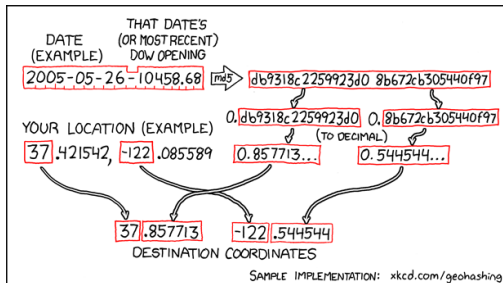 DATE (EXAMPLE)
THAT DATE'S (OR MOST RECENT) DOW OPENING
2005-05-26-10458.68
md5
db9318c2259923d0 8b672cb305440f97
0.db9318c2259923d0
0.8b672cb305440f97
(TO DECIMAL)
YOUR LOCATION (EXAMPLE)
37.421542, -122.085589
0.857713...
0.544544...
37.857713
-122.544544
DESTINATION COORDINATES
SAMPLE IMPLEMENTATION: xkcd.com/geohashing